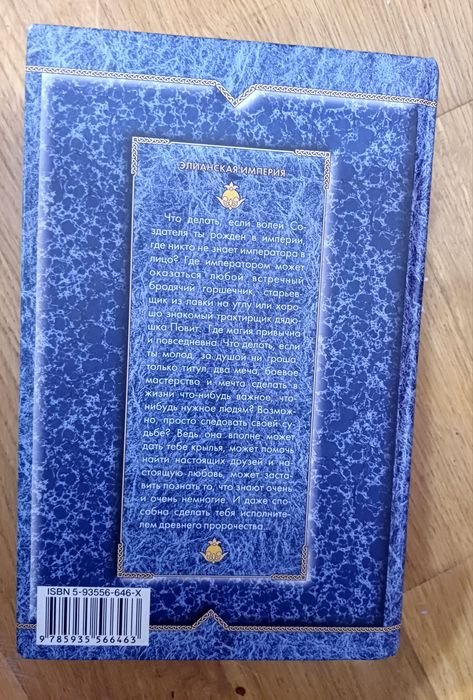 ЭЛИАНСКАЯ ИМПЕРИЯ
Что делать, если волей Со-
здателя ты рожден в империи,
где никто не знает императора в
лицо? Где императором может
оказаться любой встречный
бродячий горшечник, старьев-
щик из лавки на углу или хоро-
шо знакомый трактирщик дядю-
шка Повит. Где магия привычна
и повседневна. Что делать, если
ты молод, за душой ни гроша,
только титул, два меча, боевое
мастерство и мечта сделать в
жизни что-нибудь важное, что-
нибудь нужное людям? Возмож-
но, просто следовать своей су-
дьбе? Ведь она вполне может
дать тебе крылья, может помочь
найти настоящих друзей и на-
стоящую любовь, может заста-
вить познать то, что знают очень
и очень немногие. И даже спо-
собна сделать тебя исполните-
лем древнего пророчества...
ISBN 5-93556-646-X
9 785935 566463